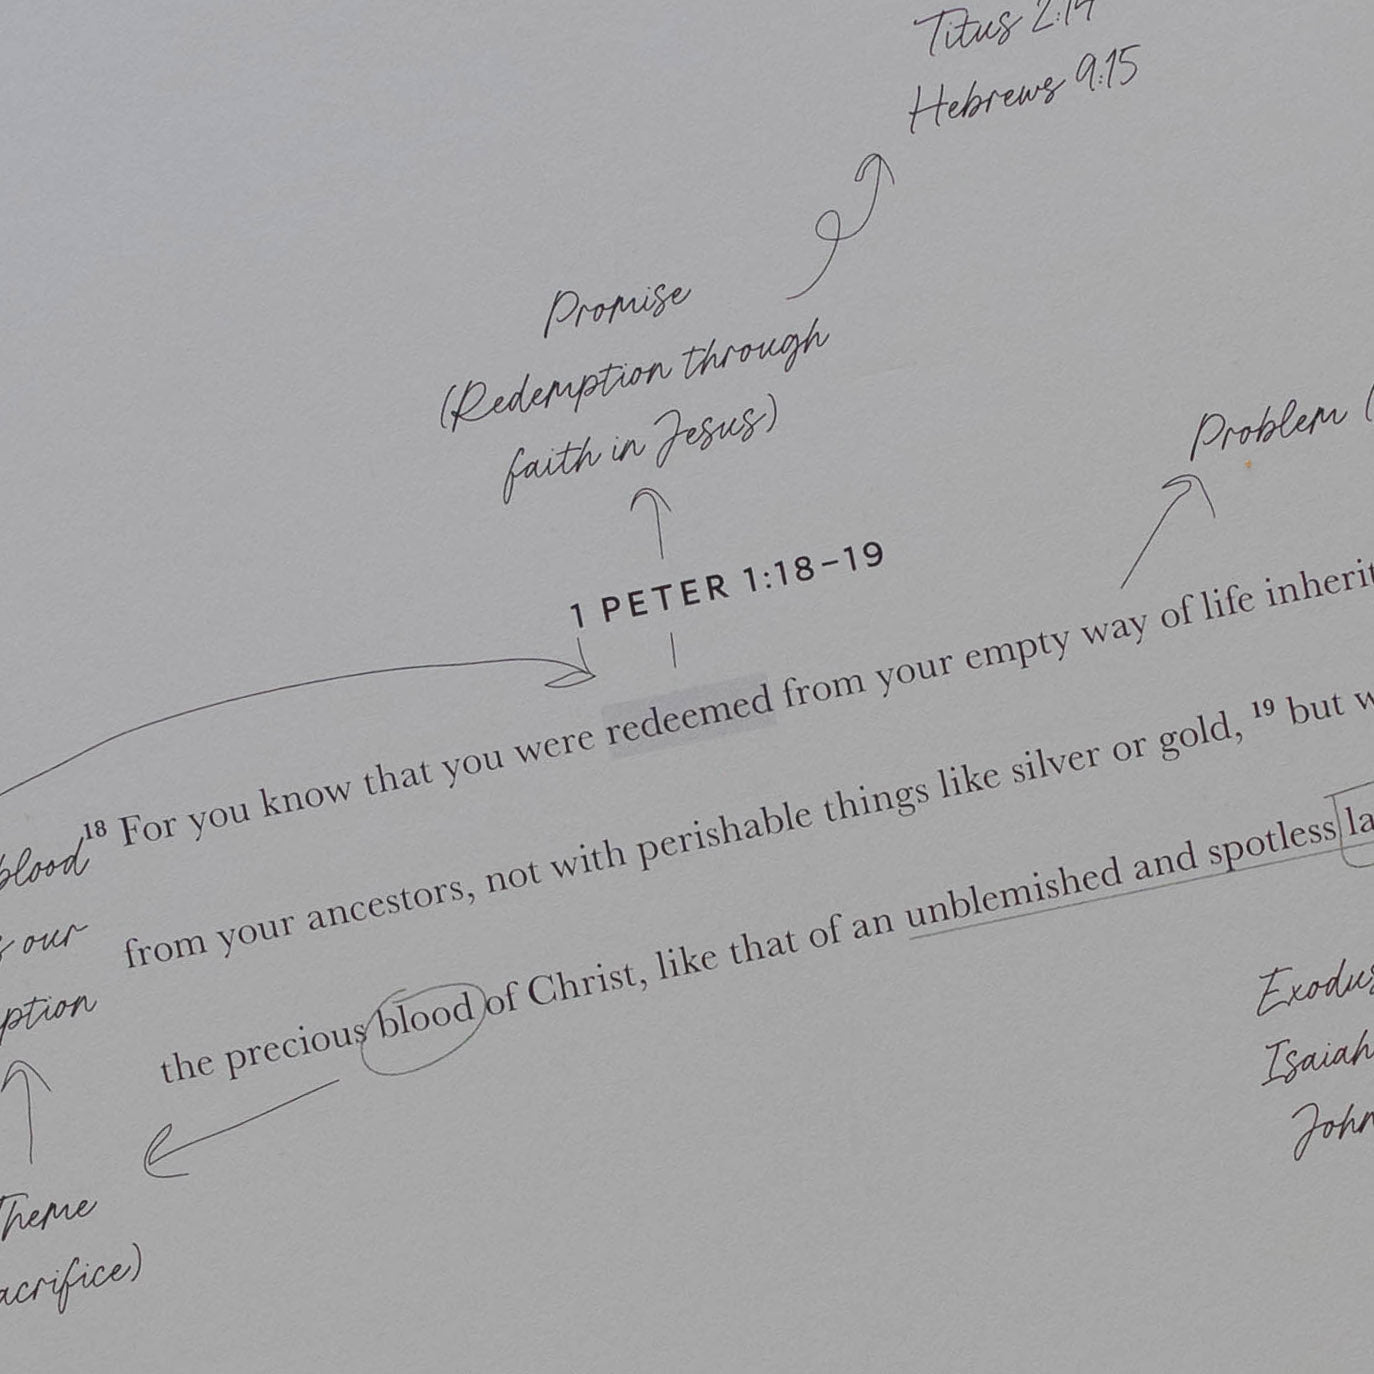 Titus 2:14
Hebrews 9:15
Promise
(Redemption through
faith in Jesus)
Problem (
1 PETER 1:18–19
18 For you know that you were redeemed from your empty way of life
from your ancestors, not with perishable things like silver or gold, 19 but
the precious blood of Christ, like that of an unblemished and spotless
blood
our
Theme
Exodus
Isaiah
John